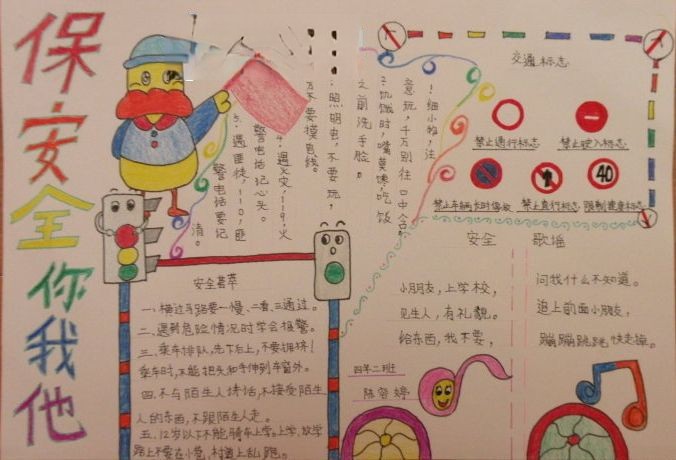 保安全你我他
1.细小物,注
意玩,千万别往口中含。
2.饥饿时,嘴莫馋,吃饭
之前洗手脸。
3.照明电,不要玩,
万不要摸电线。
4.遇火灾,119,火
警电话记心头。
5.遇匪徒,110,匪
警电话要记
清。
交通标志
禁止通行标志
禁止驶入标志
40
禁止车辆长时停放
禁止直行标志
限制速度标志
安全荟萃
一、横过马路要一慢、二看、三通过。
二、遇到危险情况时学会报警。
三、乘车排队,先下后上,不要拥挤!
乘车时,不能把头和手伸到车窗外。
四、不与陌生人讲话,不接受陌生
人的东西,不跟陌生人走。
五、12岁以下不能骑车上学。上学、放学
路上不要在小巷、村道上乱跑。
安全歌谣
小朋友,上学校,
见生人,有礼貌。
给东西,我不要,
问我什么不知道。
追上前面小朋友,
蹦蹦跳跳快走掉。
四年二班
陈容婷